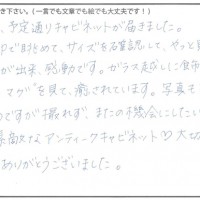 き下さい。(一言でも文章でも絵でも大丈夫です!)
、予定通りキャビネットが届きました。
Pで財をめて、サイズを確認して、やっと
が出来、感動です。ガラス越しに食
マグを見て、癒されています。写真も
のですが撮れず、またの機会にしたい
素敵なアンティークキャビネット♡大切
ありがとうございました。